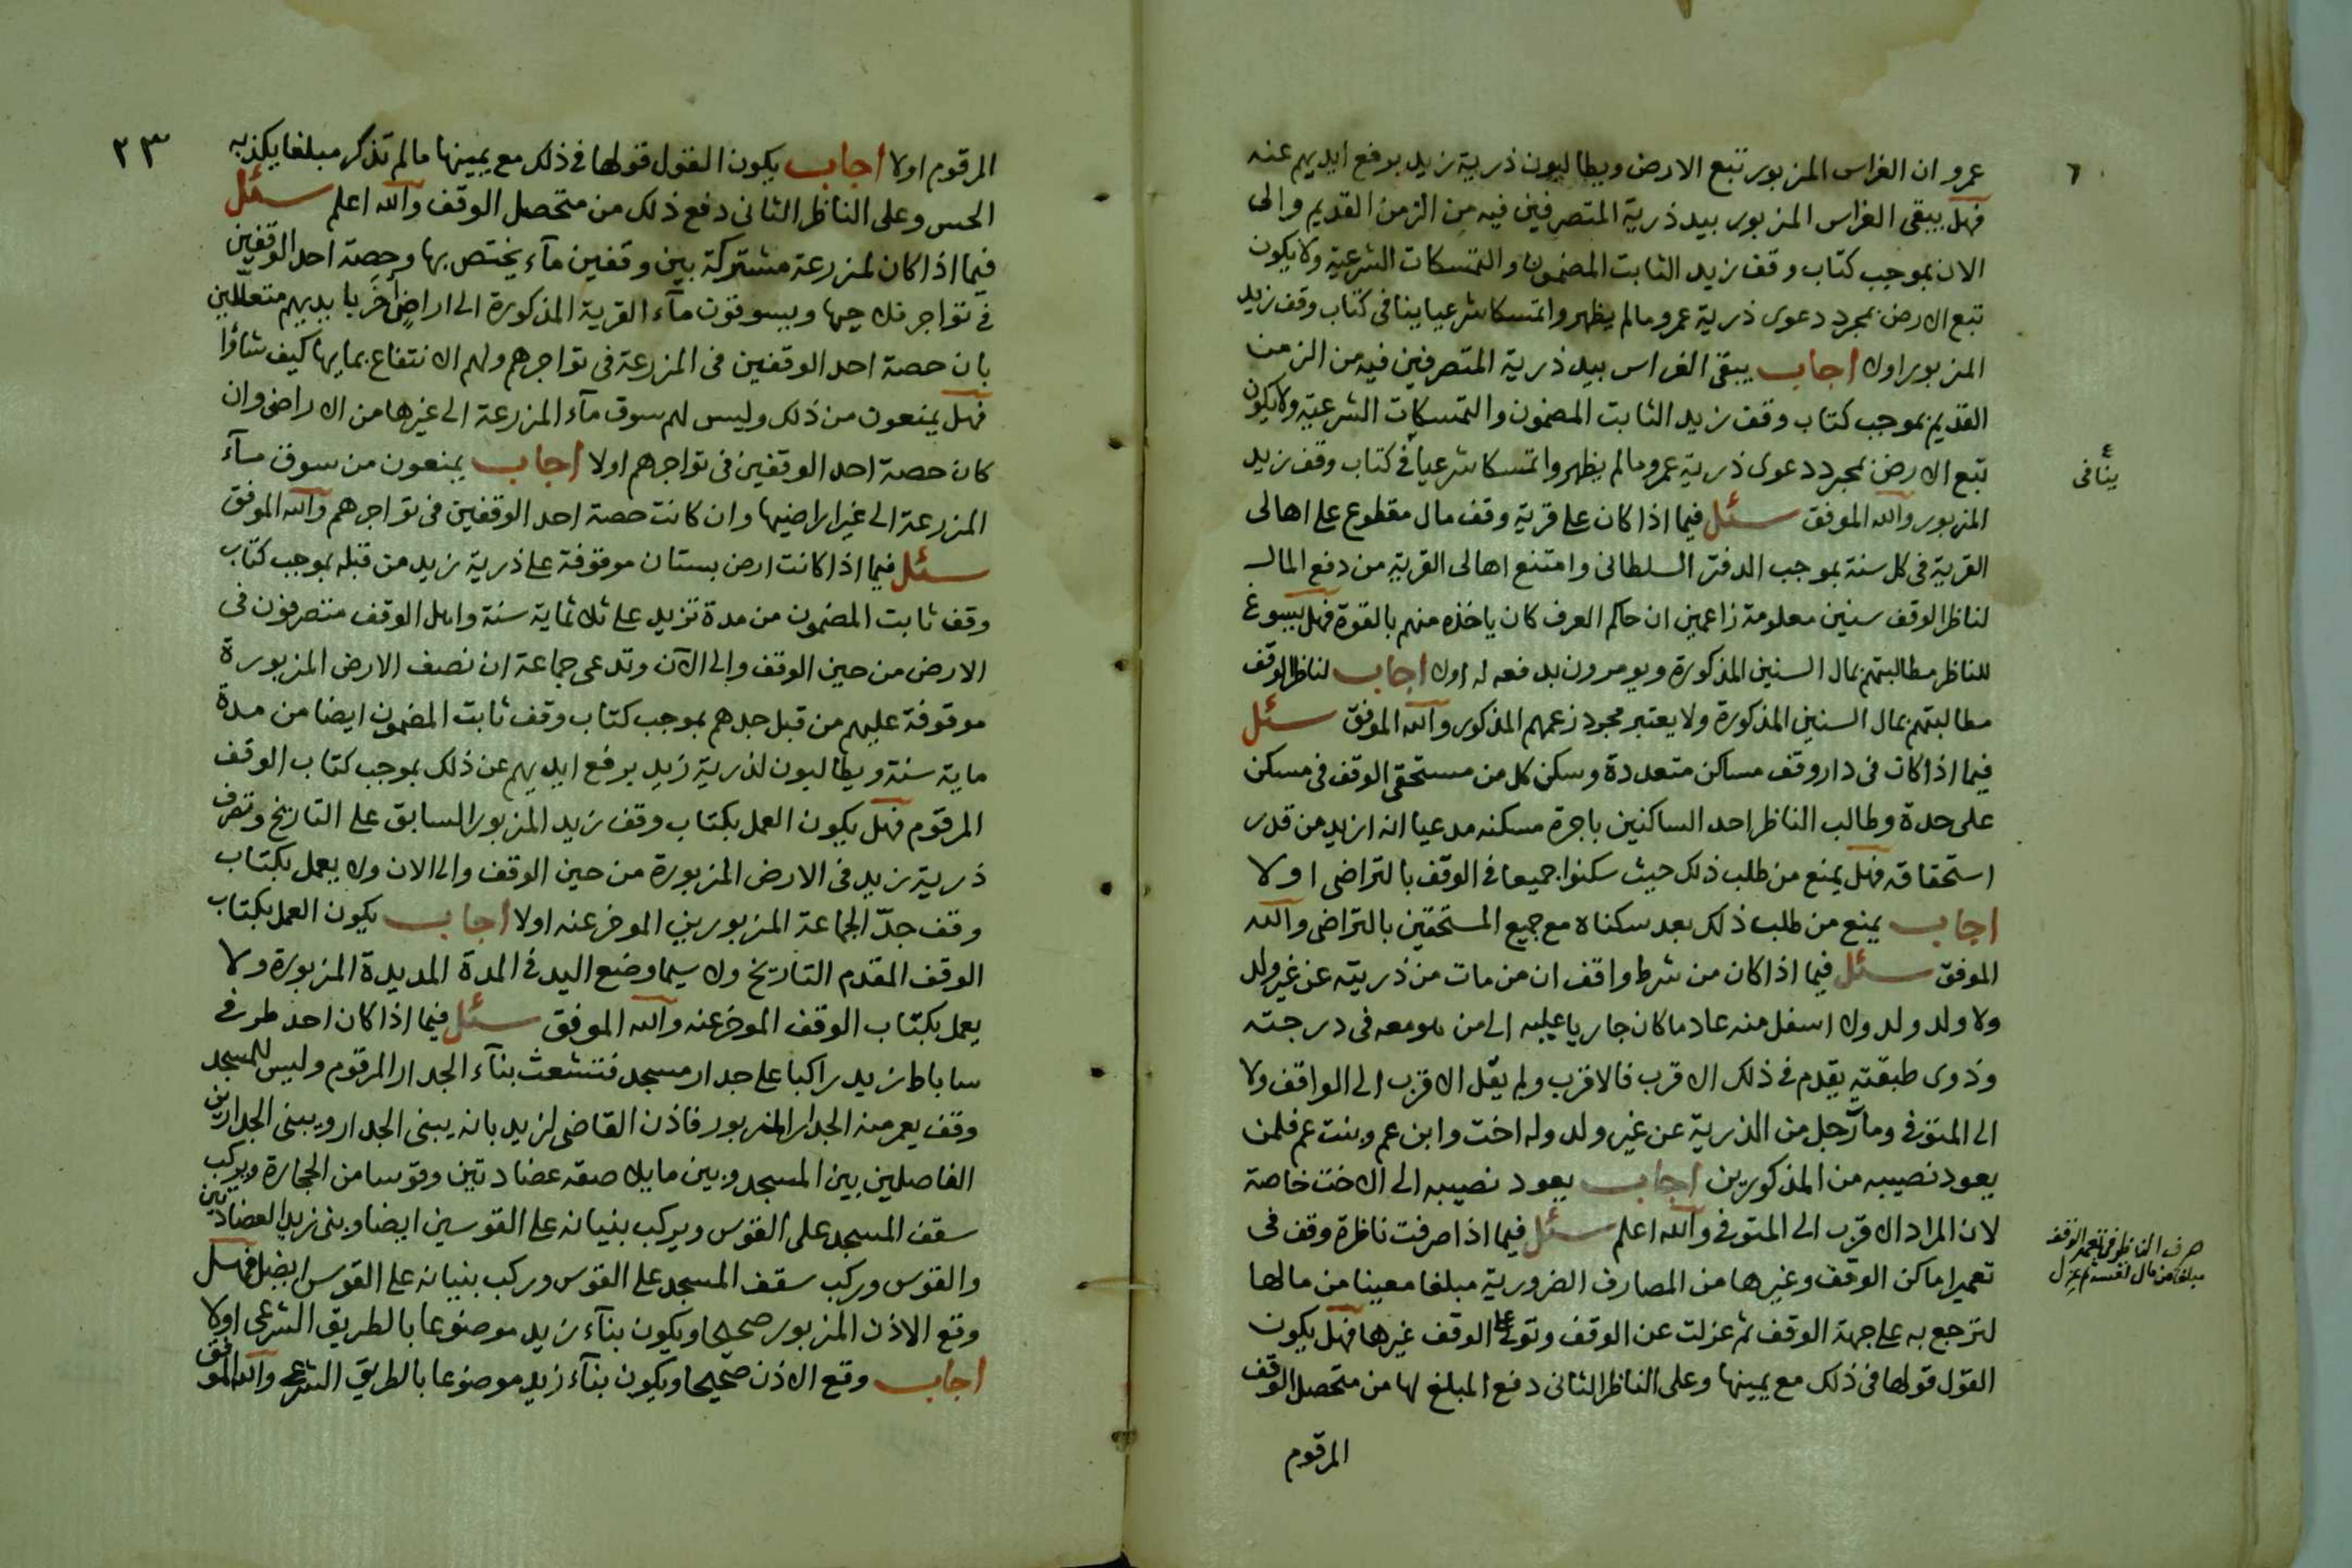 عمرو ان الغراس المزبور تبع الارض ويطالبون ذرية زيد برفع ايديهم عنه
فهل يبقى الغراس المزبور بيد ذرية المتصرفين فيه من الزمن القديم والى
الان بموجب كتاب وقف زيد الثابت المضمون والتمسكات الشرعية ولا يكون
تبع الارض بمجرد دعوى ذرية عمرو مالم يظهروا تمسكا شرعيا ينافى كتاب وقف زيد
المزبور اولا اجاب يبقى الغراس بيد ذرية المتصرفين فيه من الزمن
القديم بموجب كتاب وقف زيد الثابت المضمون والتمسكات الشرعية ولا يكون
تبع الارض بمجرد دعوى ذرية عمرو مالم يظهروا تمسكا شرعيا فى كتاب وقف زيد
ينافى
المزبور والله الموفق سئل فيما اذا كان على قرية وقف مال مقطوع على اهالى
القرية فى كل سنة بموجب الدفتر السلطانى وامتنع اهالى القرية من دفع المال
لناظر الوقف سنين معلومة زاعمين ان حاكم العرف كان ياخذه منهم بالقوة فهل يسوغ
للناظر مطالبتهم بمال السنين المذكورة ويومرون بدفعه له اولا اجاب لناظر الوقف
مطالبتهم بمال السنين المذكورة ولا يعتبر مجرد زعمهم المذكور والله الموفق سئل
فيما اذا كان فى دار وقف مساكن متعددة وسكن كل من مستحقى الوقف فى مسكن
على حدة وطالب الناظر احد الساكنين باجرة مسكنه مدعيا انه ازيد من قدر
استحقاقه فهل يمنع من طلب ذلك حيث سكنوا جميعا فى الوقف بالتراضى اولا
اجاب يمنع من طلب ذلك بعد سكناه مع جميع المستحقين بالتراضى والله
الموفق سئل فيما اذا كان من شرط واقف ان من مات من ذريته عن غير ولد
ولا ولد ولد ولا اسفل منه عاد ما كان جاريا عليه الى من هو معه فى درجته
وذوى طبقته يقدم فى ذلك الاقرب فالاقرب ولم يقل الاقرب الى الواقف ولا
الى المتوفى ومات رجل من الذرية عن غير ولد وله اخت وابن عم وبنت عم فلمن
يعود نصيبه من المذكورين اجاب يعود نصيبه الى الاخت خاصة
لان المراد الاقرب الى المتوفى والله اعلم سئل فيما اذا صرفت ناظرة وقف فى
صرف الناظر فى تعمير الوقف
مبلغا من مال نفسه ثم عزل
تعمير اماكن الوقف وغيرها من المصارف الضرورية مبلغا معينا من مالها
لترجع به على جهة الوقف ثم عزلت عن الوقف وتولى على الوقف غيرها فهل يكون
القول قولها فى ذلك مع يمينها وعلى الناظر الثانى دفع المبلغ لها من متحصل الوقف
المرقوم
٢٣
المرقوم اولا اجاب يكون القول قولها فى ذلك مع يمينها مالم تذكر مبلغا يكذبه
الحس وعلى الناظر الثانى دفع ذلك من متحصل الوقف والله اعلم سئل
فيما اذا كان لمزرعة مشتركة بين وقفين مآء يختص بها وحصة احد الوقفين
فى تواجر ويسوقون مآء القرية المذكورة الى اراضٍ اخر بايديهم متعللين
بان حصة احد الوقفين فى المزرعة فى تواجرهم ولهم الانتفاع بمايها كيف شاؤا
فهل يمنعون من ذلك وليس لهم سوق مآء المزرعة الى غيرها من الاراضى وان
كان حصة احد الوقفين فى تواجرهم اولا اجاب يمنعون من سوق مآء
المزرعة الى غير اراضيها وان كانت حصة احد الوقفين فى تواجرهم والله الموفق
سئل فيما اذا كانت ارض بستان موقوفة على ذرية زيد من قبله بموجب كتاب
وقف ثابت المضمون من مدة تزيد على ثلاثماية سنة واهل الوقف متصرفون فى
الارض من حين الوقف والى الآن وتدعى جماعة ان نصف الارض المزبورة
موقوفة عليهم من قبل جدهم بموجب كتاب وقف ثابت المضمون ايضا من مدة
ماية سنة ويطالبون لذرية زيد برفع ايديهم عن ذلك بموجب كتاب الوقف
المرقوم فهل يكون العمل بكتاب وقف زيد المزبور السابق على التاريخ وتصرف
ذرية زيد فى الارض المزبورة من حين الوقف والى الان ولا يعمل بكتاب
وقف جدّ الجماعة المزبورين الموخر عنه اولا اجاب يكون العمل بكتاب
الوقف المقدم التاريخ ولا سيما وضع اليد فى المدة المديدة المزبورة ولا
يعمل بكتاب الوقف الموخر عنه والله الموفق سئل فيما اذا كان احد طرفى
ساباط زيد راكبا على جدار مسجد فتشعث بنآء الجدار المرقوم وليس للمسجد
وقف يعمر منه الجدار المزبور فاذن القاضى لزيد بانه يبنى الجدار ويبنى الجدارين
الفاصلين بين المسجد وبين مايلاصقه عضادتين وقوسا من الحجارة ويركب
سقف المسجد على القوس ويركب بنيانه على القوسين ايضا وبنى زيد العضادتين
والقوس وركب سقف المسجد على القوس وركب بنيانه على القوس ايضا فهل
وقع الاذن المزبور صحيحا ويكون بنآء زيد موضوعا بالطريق الشرعى اولا
اجاب وقع الاذن صحيحا ويكون بنآء زيد موضوعا بالطريق الشرعى والله الموفق